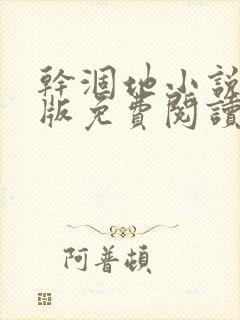 幹涸地小說
版免費閱讀
阿普頓